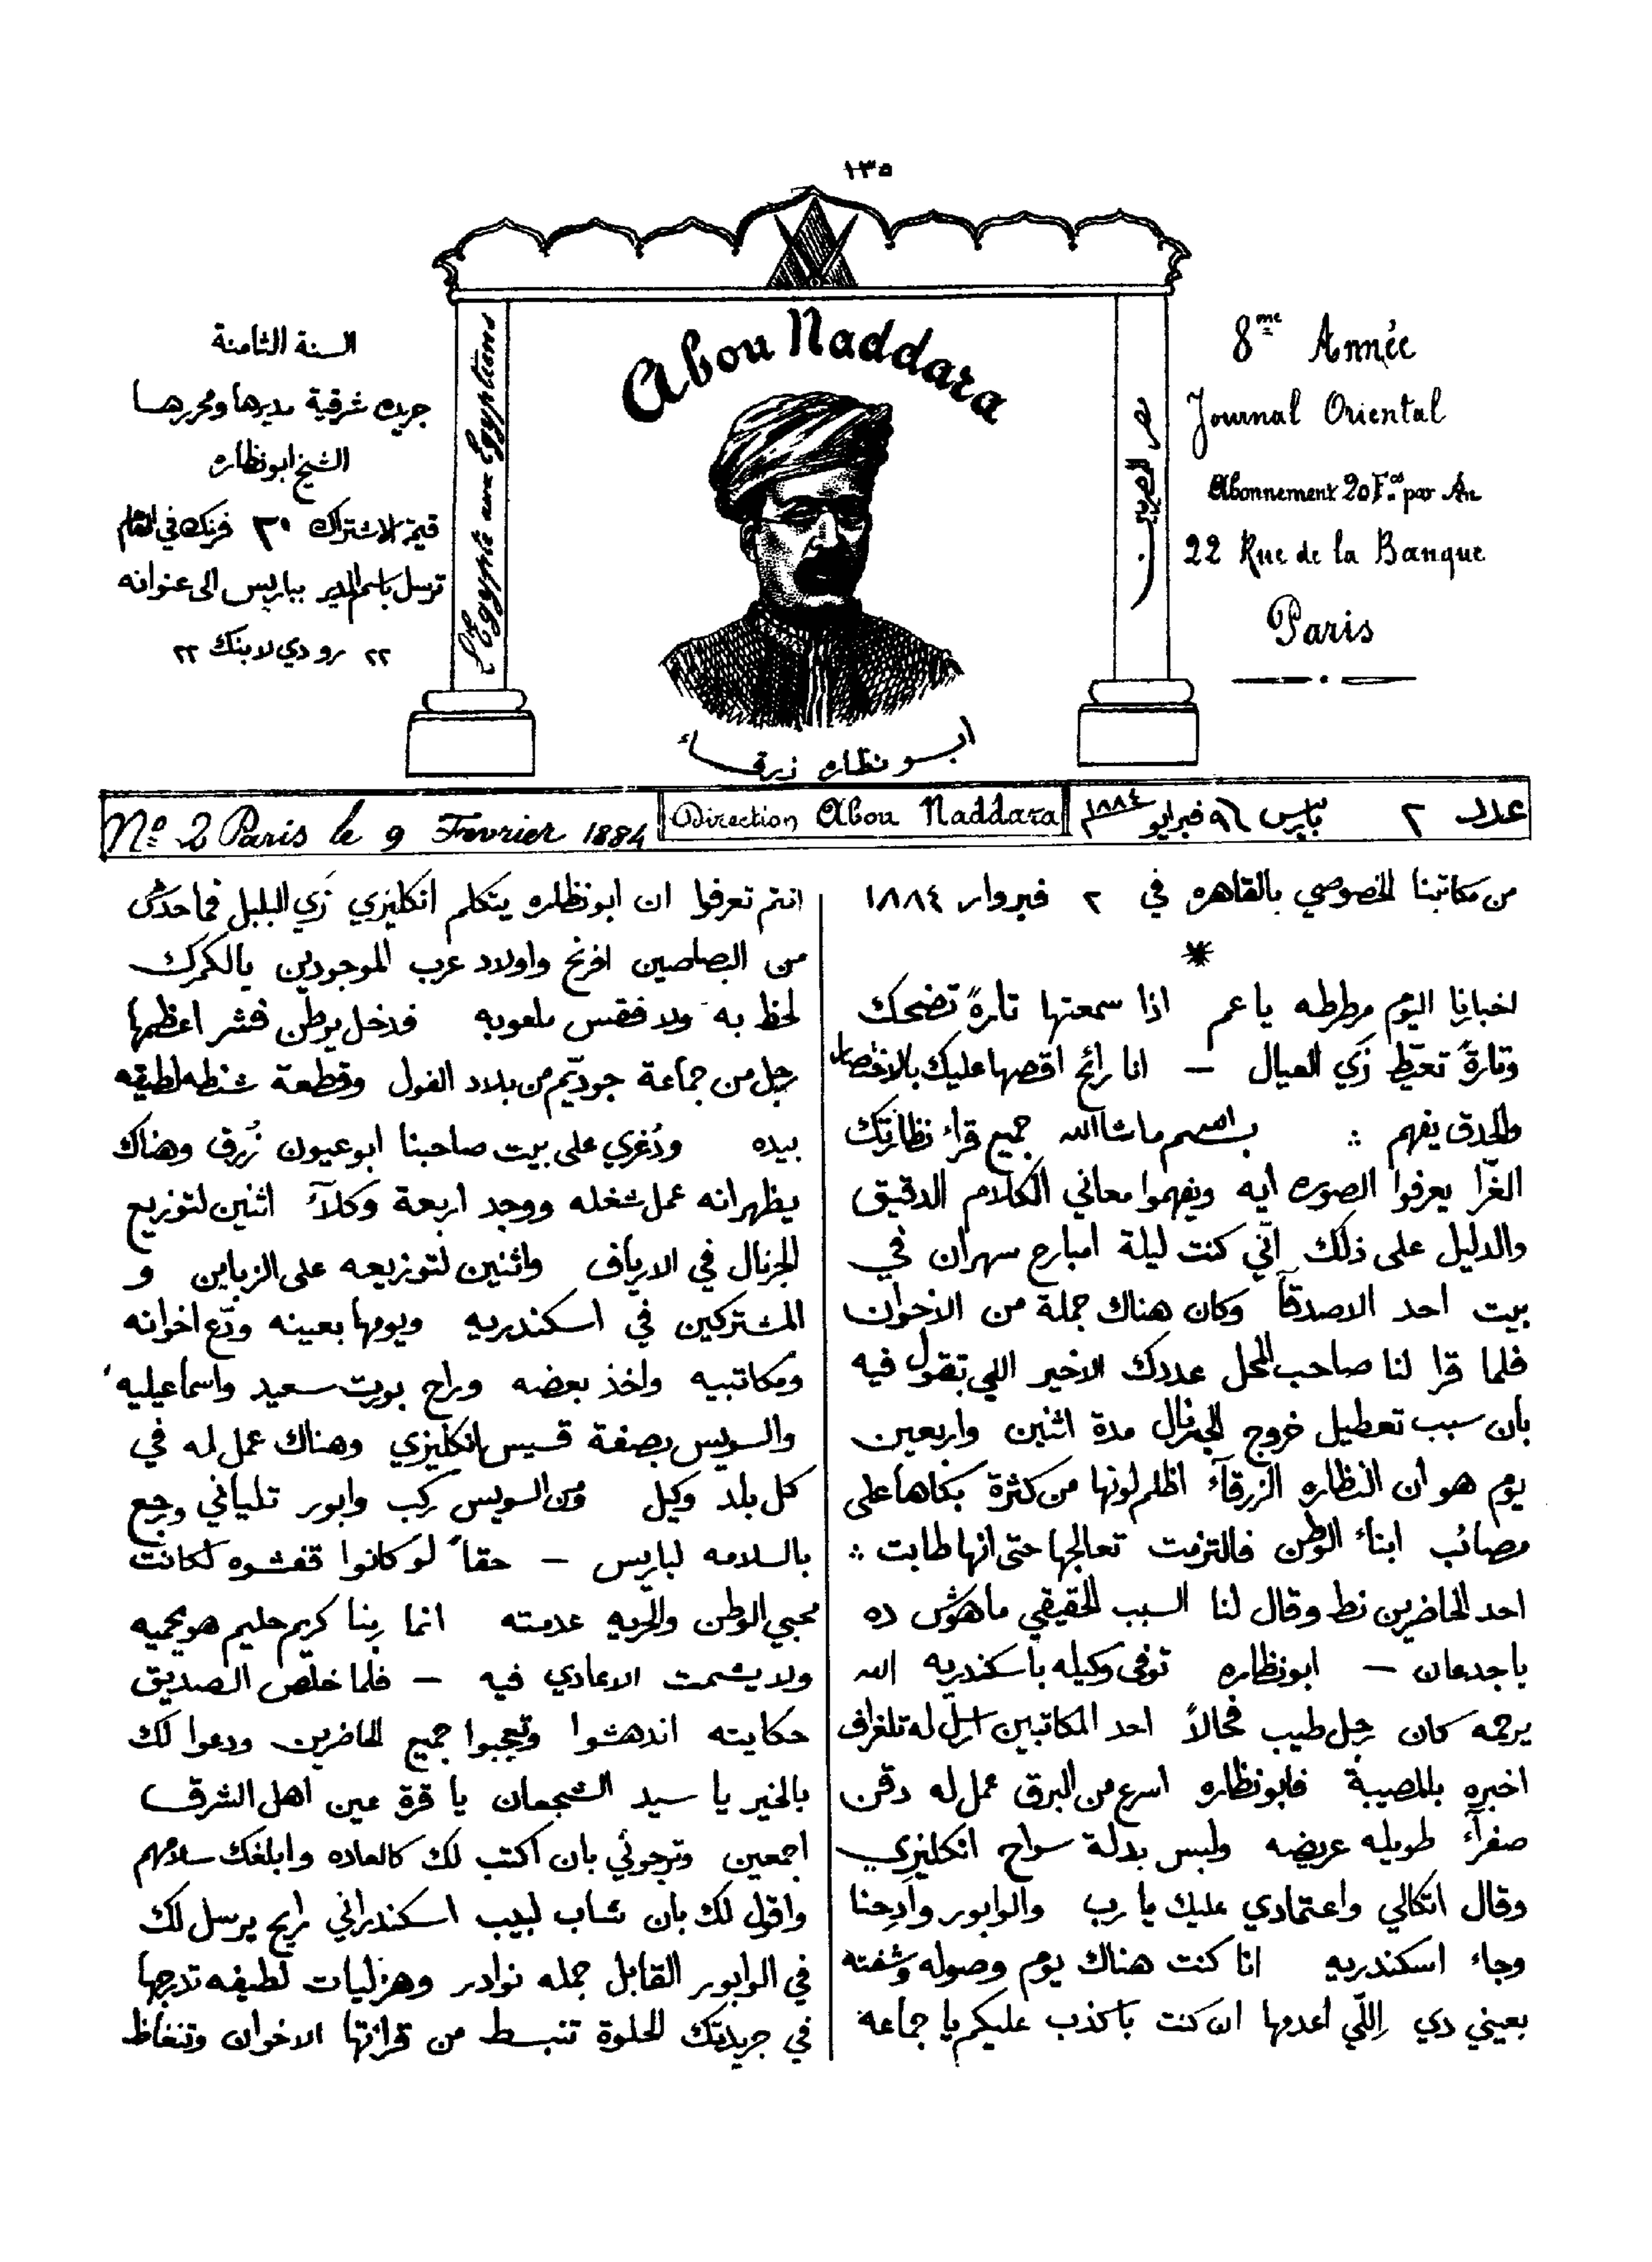 ١٣٥
السنة الثامنة
جريده شرقية مديرها ومحررها
الشيخ ابونظاره
قيمة الاشتراك ٢٠ فرنك في العام
ترسل باسم المدير بباريس الى عنوانه
٢٢ رو دي لابنك ٢٢
L'Egypte aux Egyptiens
Abou Naddara
مصر للمصريين
ابو نظاره زرقاء
8me Année
Journal Oriental
Abonnement 20 Fcs par An
22 Rue de la Banque
Paris
No 2 Paris le 9 Fevrier 1884
Direction Abou Naddara
عدد ٢ باريس ٩ فبرايو ١٨٨٤
من مكاتبنا الخصوصي بالقاهره في ٢ فبروار ١٨٨٤
*
اخبارنا اليوم مرطرطه ياعم اذا سمعتها تارةً تضحك
وتارةً تعيّط زَي العيال — انا رائح اقصها عليك بالاختصار
والحدق يفهم ؞ بسم ماشاالله جميع قراء نظارتك
الغرّا يعرفوا الصوره ايه ويفهموا معاني الكلام الدقيق
والدليل على ذلك انّي كنت ليلة امبارع سهران في
بيت احد الاصدقآ وكان هناك جملة من الاخوان
فلما قرا لنا صاحب المحل عددك الاخير اللي تقول فيه
بان سبب تعطيل خروج الجرنال مدة اثنين واربعين
يوم هو ان النظاره الزرقآء اظلم لونها من كثرة بكاها على
مصائب ابناء الوطن فالتزمت تعالجها حتى انها طابت ؞
احد الحاضرين نط وقال لنا السبب الحقيقي ماهوش ده
ياجدعان — ابونظاره توفى وكيله باسكندريه الله
يرحمه كان رجل طيب فحالاً احد المكاتبين ارسل له تلغراف
اخبره بالمصيبة فابونظاره اسرع من البرق عمل له دقن
صفرآء طويله عريضه ولبس بدلة سواح انكليزي
وقال اتكالي واعتمادي عليك يا رب والوابور وادِحنا
وجاء اسكندريه انا كنت هناك يوم وصوله وشفته
بعيني دي اِللّي اعدمها ان كنت باكذب عليكم يا جماعة
انتم تعرفوا ان ابونظاره يتكلم انكليزي زَي البلبل فما حدش
من البصاصين افرنج واولاد عرب الموجودين بالكمرك
لحظ به ولا فقس ملعوبه فدخل بوطن فشر اعظمها
رجل من جماعة جودتيم من بلاد الفول وقطعة شنطه لطيفه
بيده ودُغري على بيت صاحبنا ابوعيون زُرق وهناك
يظهر انه عمل شغله ووجد اربعة وكلآ اثنين لتوزيع
الجرنال في الارياف واثنين لتوزيعه على الزباين و
المشتركين في اسكندريه ويومها بعينه ودّع اخوانه
ومكاتبيه واخذ بعضه وراح بورت سعيد واسماعيليه
والسويس بصفة قسيس انكليزي وهناك عمل له في
كل بلد وكيل ومن السويس ركب وابور تلياني ورجع
بالسلامه لباريس — حقاً لو كانوا قفشوه لكانت
محبي الوطن والحريه عدمته انما ربنا كريم حليم هو يحميه
ولا يشمت الاعادي فيه — فلما خلص الصديق
حكايته اندهشوا وتعجبوا جميع الحاضرين ودعوا لك
بالخير يا سيد الشجعان يا قرة عين اهل الشرق
اجمعين وترجوني بان اكتب لك كالعاده وابلغك سلامهم
واقول لك بان شاب لبيب اسكندراني رايح يرسل لك
في الوابور القابل جمله نوادر وهزليات لطيفه تدرجها
في جريدتك الحلوة تنبسط من قرائتها الاخوان وتنغاظ